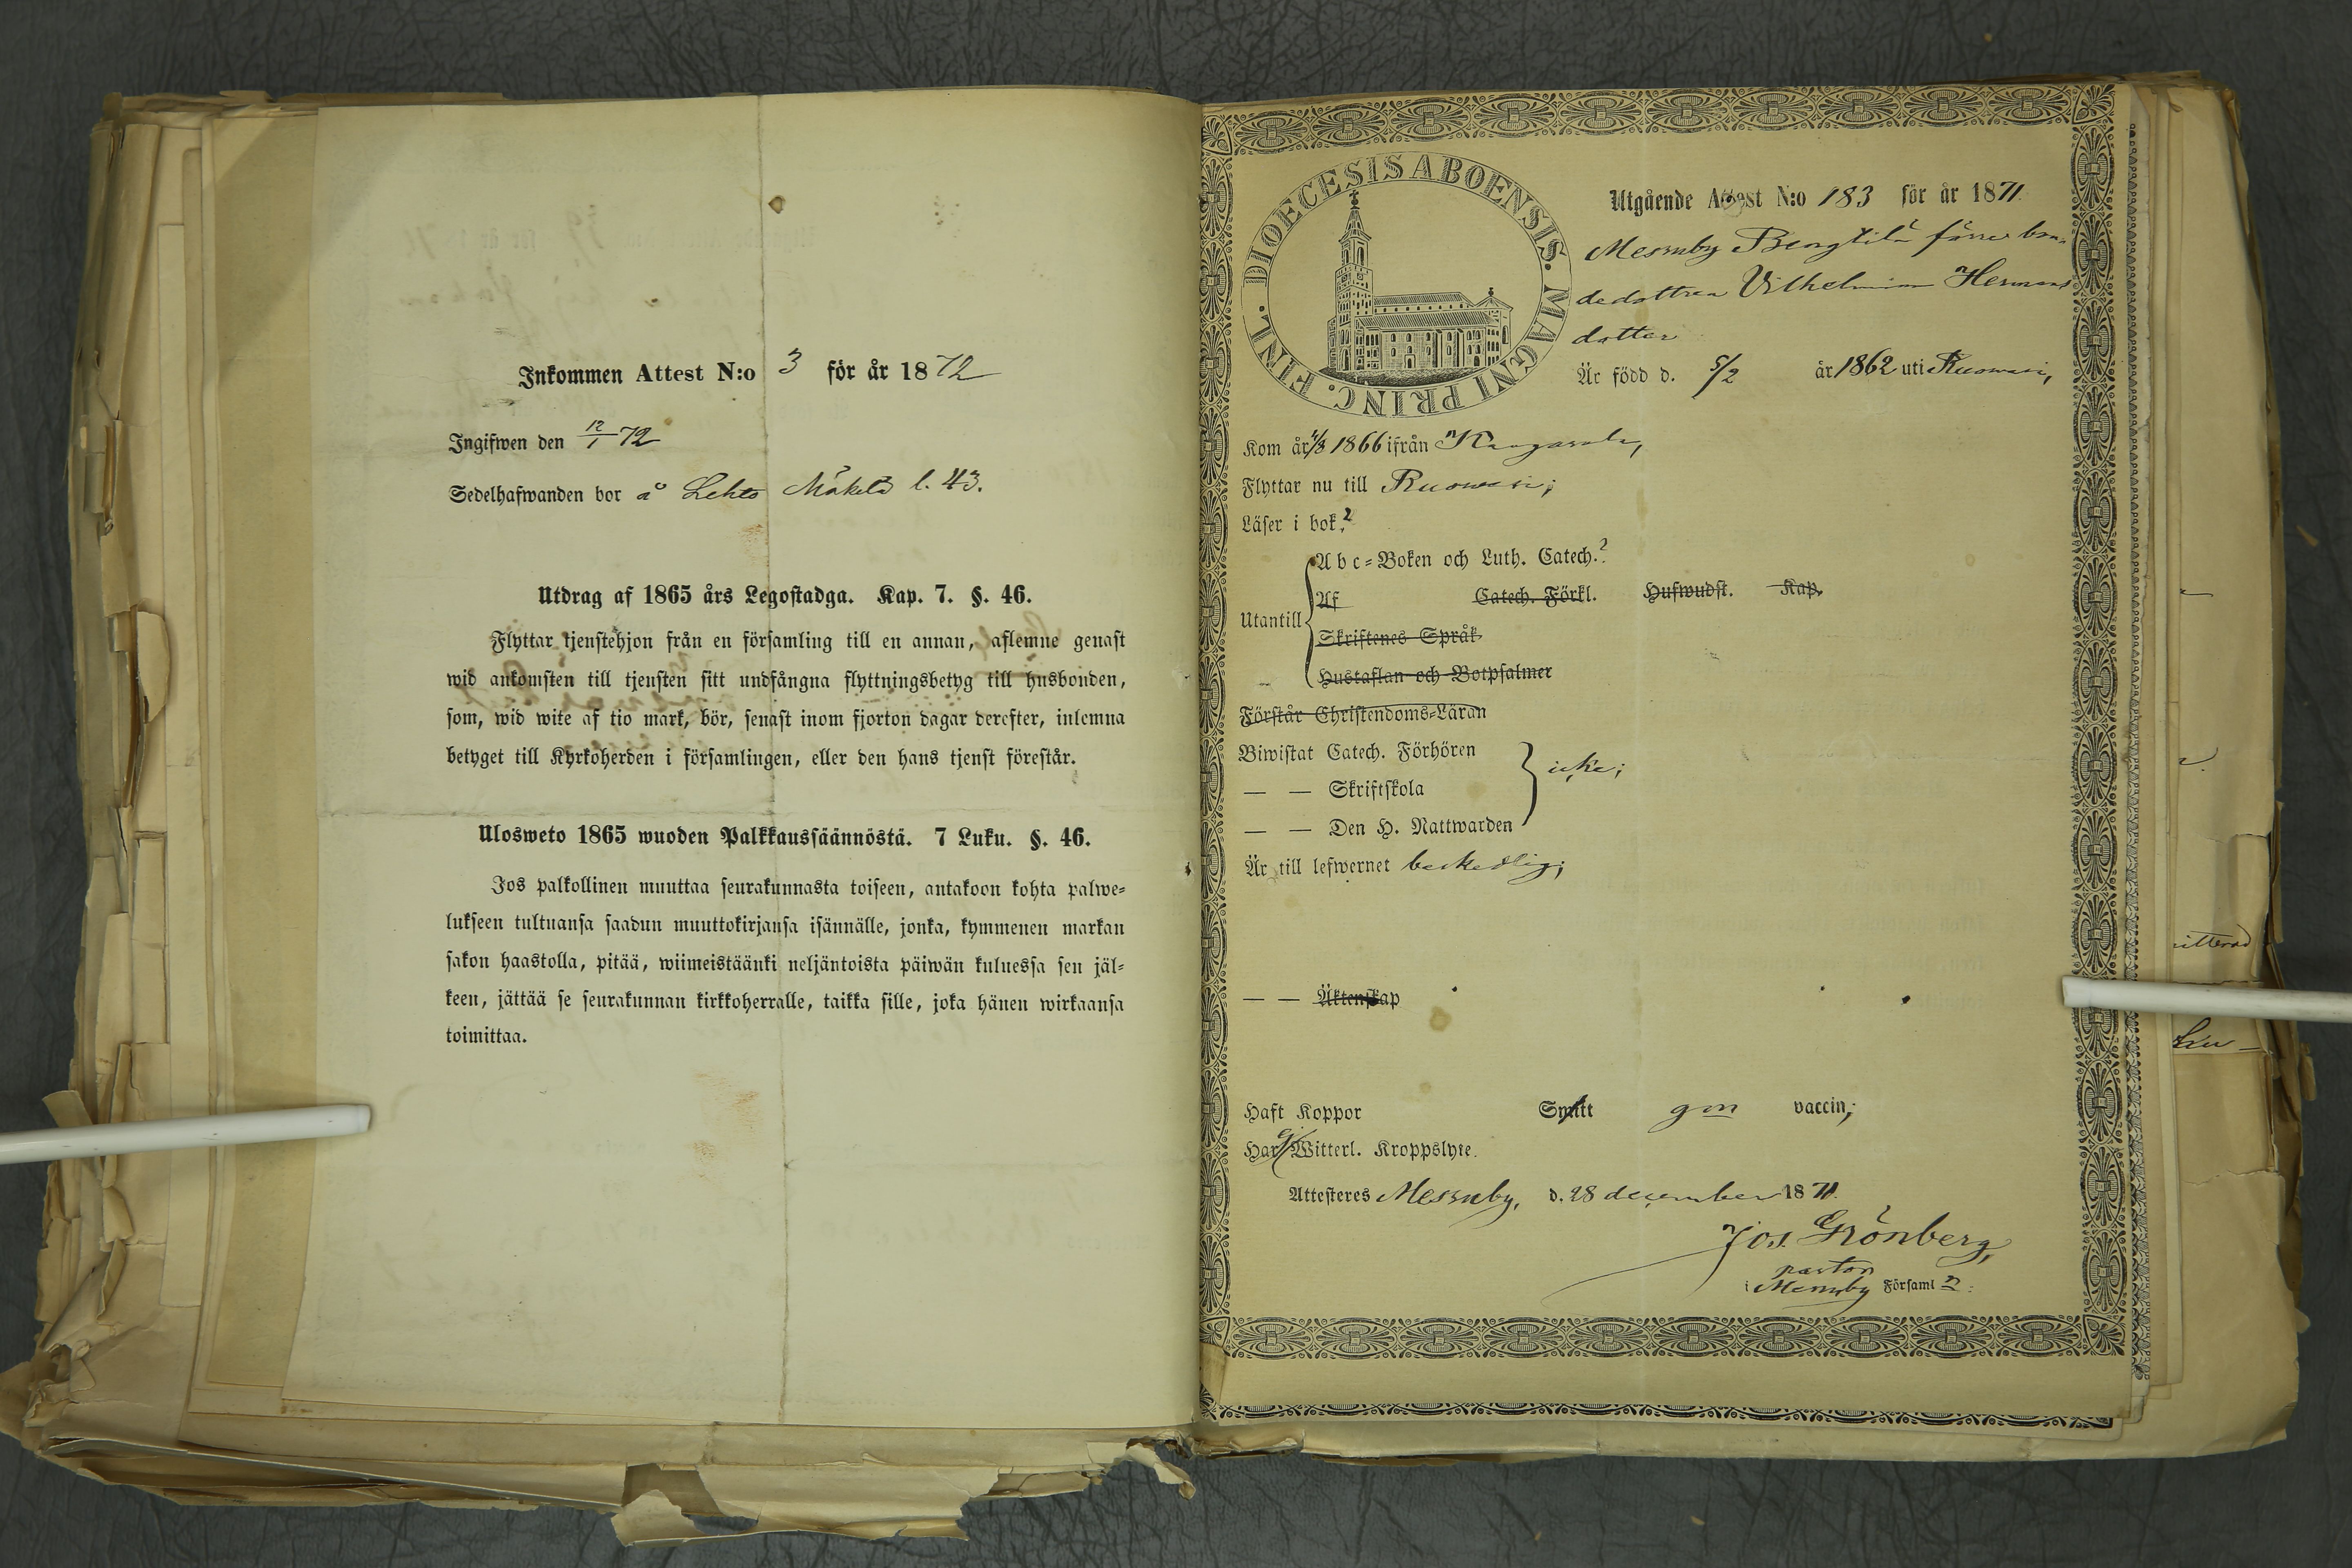 Inkommen Attest N:o 3 för år 1872
Ingifwen den 12/1 72
Sedelhafwanden bor å Lehto Mäkelä l. 43.
Utdrag af 1865 års Legostadga. Kap. 7. §. 46.
Flyttar tjenstehjon från en församling till en annan, aflemne genast
wid ankomsten till tjensten sitt undfångna flyttningsbetyg till husbonden,
som, wid wite af tio mark, bör, senast inom fjorton dagar derefter, inlemna
betyget till Kyrkoherden i församlingen, eller den hans tjenst förestår.
Ulosweto 1865 wuoden Palkkaussäännöstä. 7 Luku. §. 46.
Jos palkollinen muuttaa seurakunnasta toiseen, antakoon kohta palwe-
lukseen tultuansa saadun muuttokirjansa isännälle, jonka, kymmenen markan
sakon haastolla, pitää, wiimeistäänki neljäntoista päiwän kuluessa sen jäl-
keen, jättää se seurakunnan kirkkoherralle, taikka sille, joka hänen wirkaansa
toimittaa.
DIOECESIS ABOENSIS. MAGNI PRINC. FINL.
Utgående Attest N:o 183 för år 1871.
Messuby Bengtilä förre bon-
dedottren Vilhelmina Hermans
dotter
Är född d. 5/2 år 1862 uti Ruowesi,
Kom år 4/3 1866 ifrån Kangasala,
Flyttar nu till Ruowesi;
Läser i bok, 2
Abc-Boken och Luth. Catech. 2
Utantill
Af Catech. Förkl. Hufwudst. Kap.
Skriftenes Språk
Hustaflan och Botpsalmer
Förstår Christendoms-Läran
Biwistat Catech. Förhören
— — Skriftskola icke;
— — Den H. Nattwarden
Är till lefwernet beskedlig;
— — Äktenskap
Haft Koppor Synt gm vaccin;
Har ej Witterl. Kroppslyte.
Attesteres Messuby, d. 28 december 1871.
Jos. Grönberg,
pastor
i Messuby Församl n:
itterad